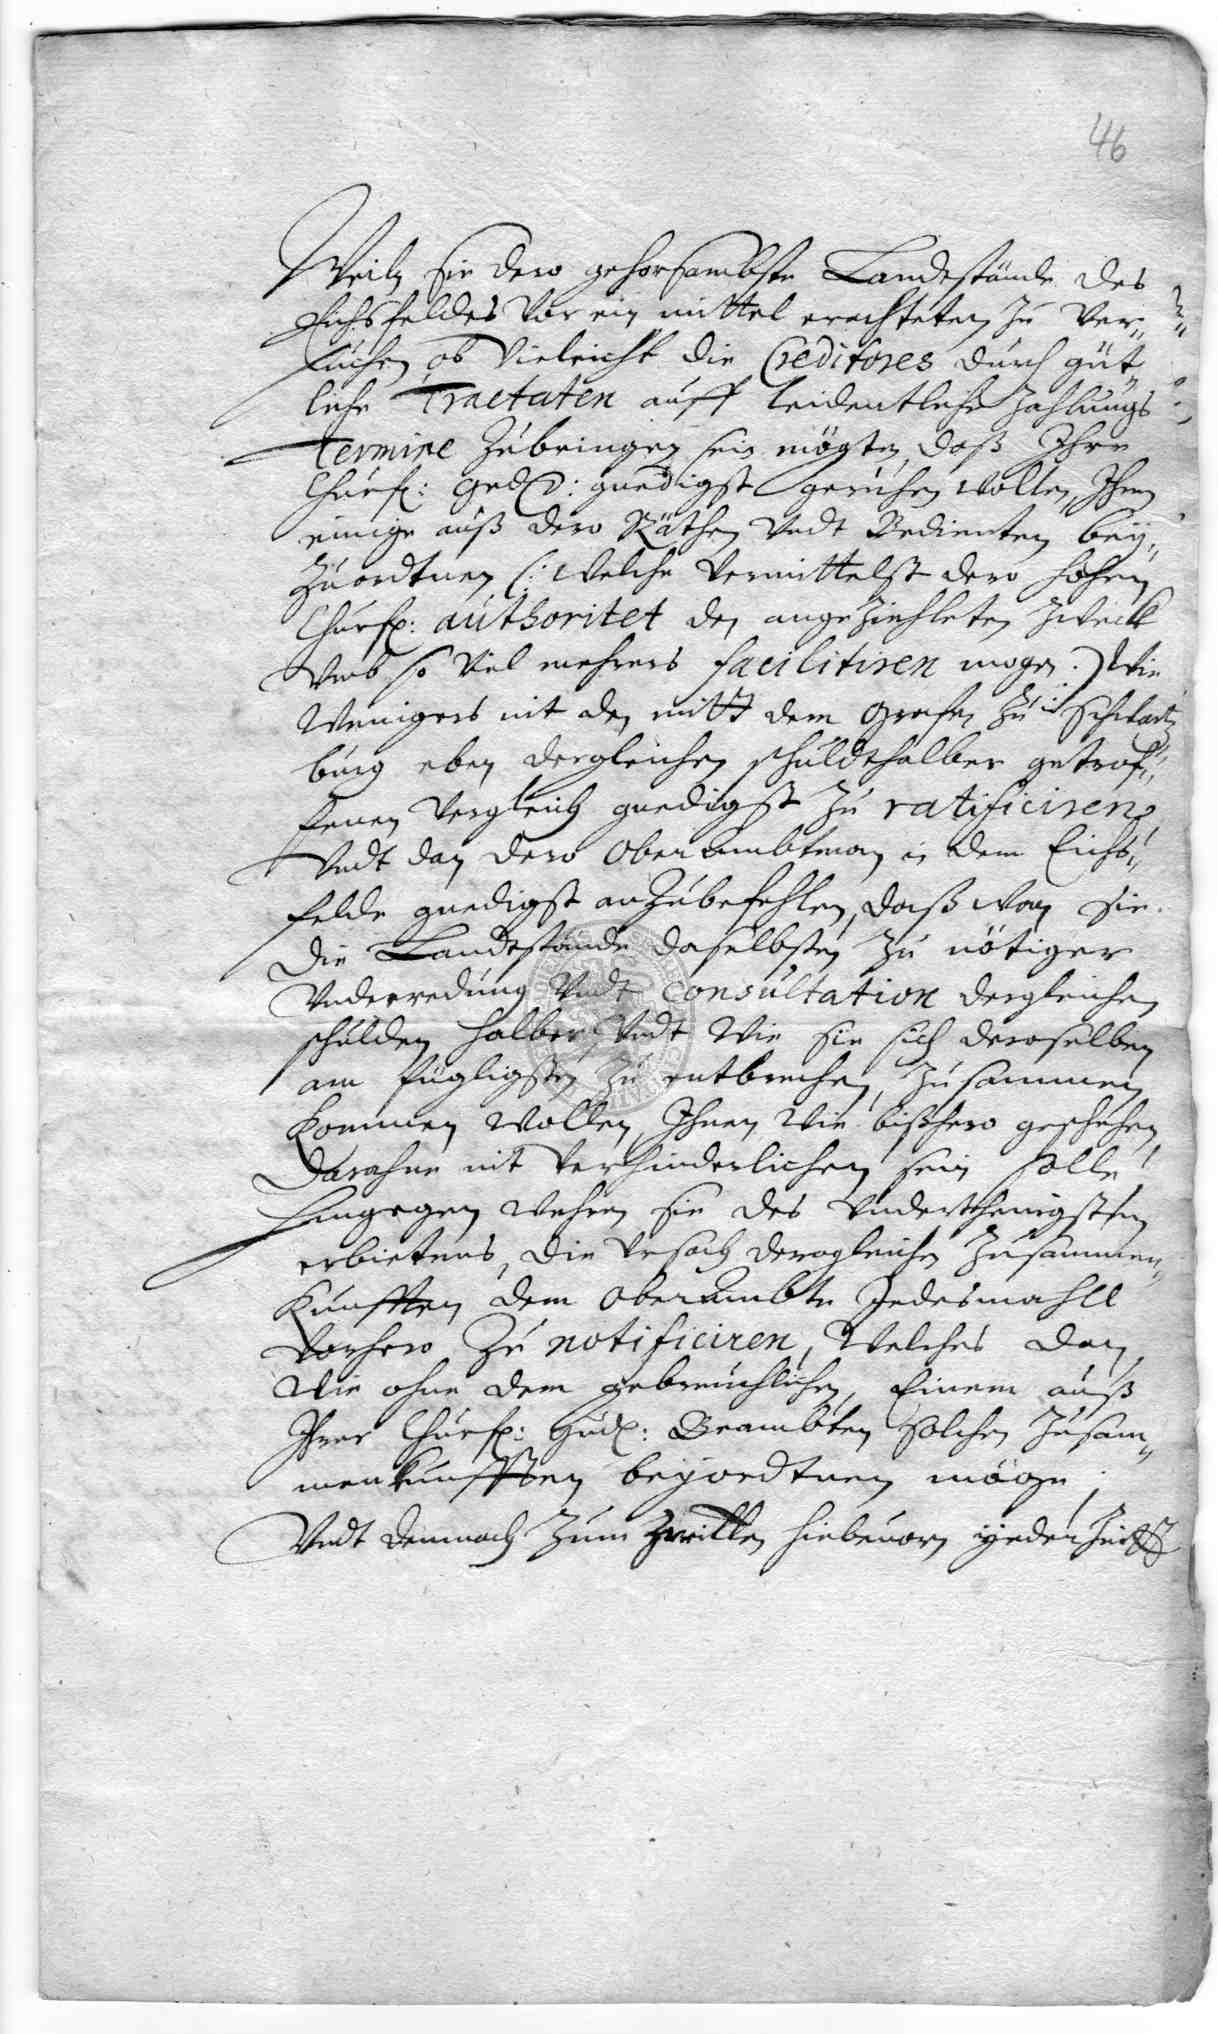 46
Weiln sie dero gehorsambste Landtstände des
Eichsfeldes vor ein mittel erachteten zu ver„
suchen ob vieleicht die Creditores durch güt„
liche Tractaten auff leidentliche Zahlungs
Termine zubringen sein mögten, daß Ihre
Churf: Gnd: gnedigst geruhen wollen, Ihnen
einige auß dero Räthen vndt Bedienten bey„
zuordtnen (: welche vermittelst dero hohen
Churf: authoritet den angeziehleten Zweck
vmb so viel mehrers facilitiren mogen :) wie
wenigers nit den mitt dem Grafen zu Schwartz
burg eben dergleichen schuldthalber getrof„
fenen Vergleich gnedigst zu ratificiren,
Vndt dan dero Oberambtman in dem Eichs„
felde gnedigst anzubefehlen, daß wan sie
die Landtstände daselbsten zu nötiger
Vnderredung vndt Consultation dergleichen
schulden halber, vndt wie sie sich deroselben
am fügligsten zu entbrechen, zusammen
kommen wollen, Ihnen wie bißhero geschehen,
darahne nit verhinderlichen sein solle,
hingegen wehren sie des vnderthenigsten
erbietens, die Vrsach deroegleichen Zusammen„
kunfften dem Oberambte Jedesmahll
vorhero zu notificiren, welches dan,
wie ohne dem gebreuchlichen, Einem auß
Ihrer Churf: Gnd: Beambten solchen Zusam„
menkunfften beyordtnen möge.
Vndt demnach zum Zweitten hiebeuorn